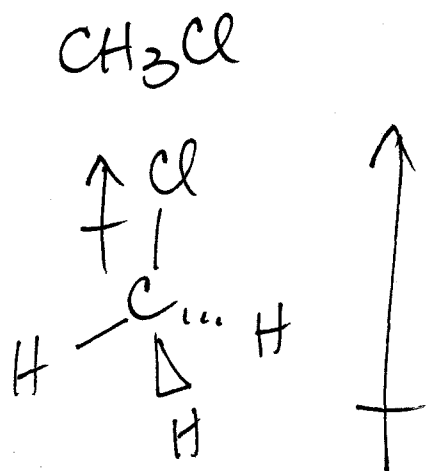 CH3Cl
Cl
C
H
H
H